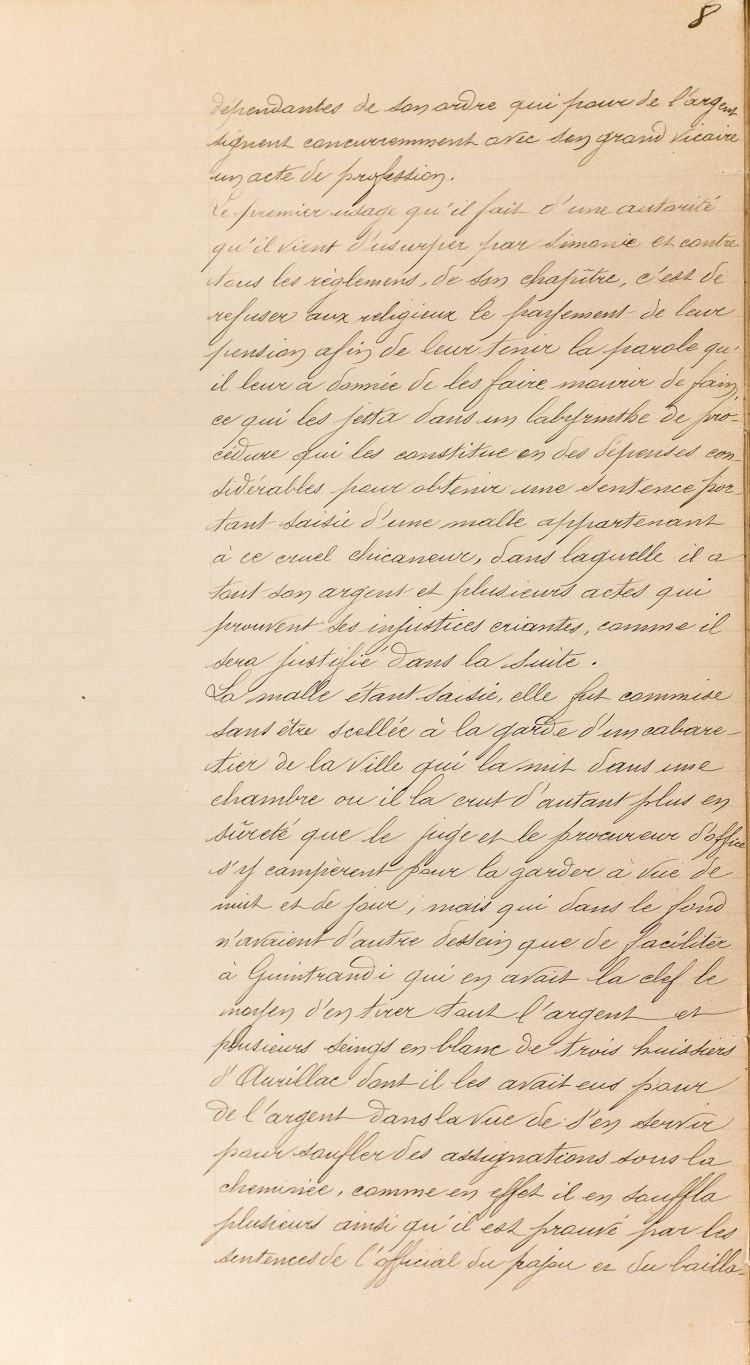 8
dépendantes de son ordre qui pour de l'argent
signent concurremment avec son grand vicaire
un acte de profession.
Le premier usage qu'il fait d'une autorité
qu'il vient d'usurper par simonie et contre
tous les règlemens, de son chapitre, c'est de
refuser aux religieux le payement de leur
pension afin de leur tenir la parole qu'
il leur a donnée de les faire mourir de faim,
ce qui les jetta dans un labyrinthe de pro-
cédure qui les constitue en des dépenses con-
sidérables pour obtenir une sentence por-
tant saisie d'une malle appartenant
à ce cruel chicaneur, dans laquelle il a
tout son argent et plusieurs actes qui
prouvent ses injustices criantes, comme il
sera justifié dans la suite.
La malle étant saisie, elle fut commise
sans être scellée à la garde d'un cabare-
tier de la ville qui la mit dans une
chambre ou il la crut d'autant plus en
sûreté que le juge et le procureur d'office
s'y campèrent pour la garder à vue de
nuit et de jour, mais qui dans le fond
n'avaient d'autre dessein que de faciliter
à Guintrandi qui en avait la clef le
moyen d'en tirer tout l'argent et
plusieurs seings en blanc de trois huissiers
d'Aurillac dont il les avait eus pour
de l'argent dans la vue de s'en servir
pour soufler des assignations sous la
cheminée, comme en effet il en souffla
plusieurs ainsi qu'il est prouvé par les
sentences de l'official du pajou et du bailla-